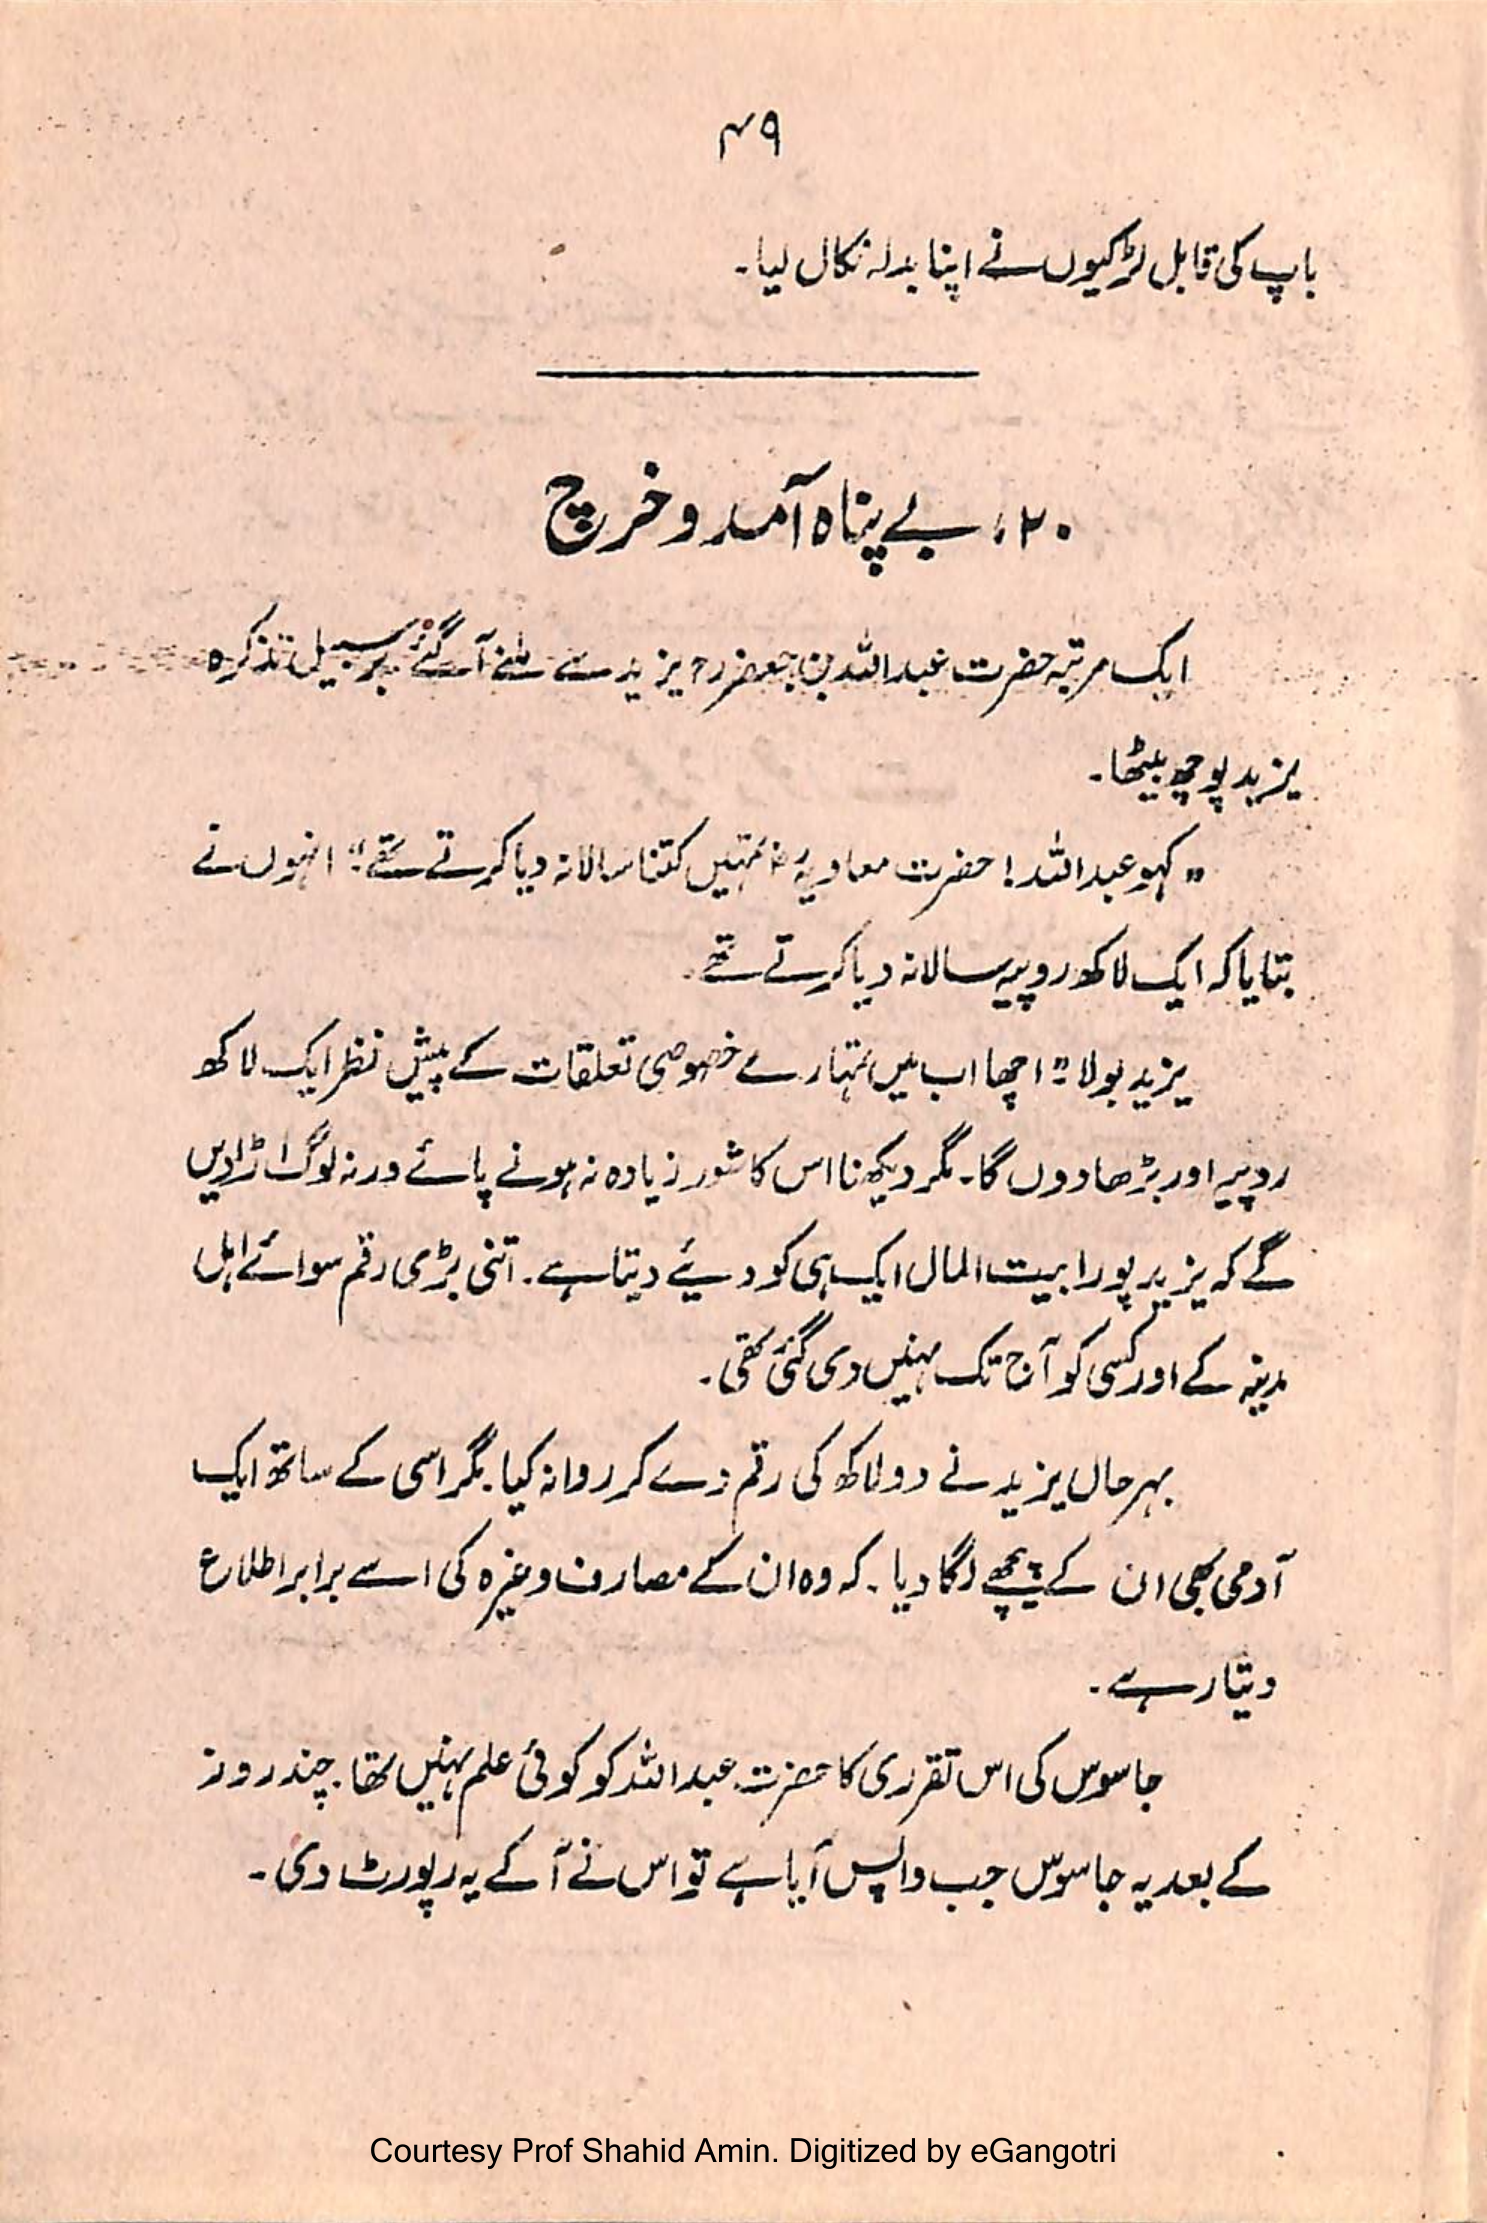 ۴۹
باپ کی قابل لڑکیوں نے اپنا بدلہ نکال لیا۔
۲۰، بے پناہ آمد و خرچ
ایک مرتبہ حضرت عبداللہ بن جعفرؓ یزید سے ملنے آگئے برسبیل تذکرہ
یزید پوچھ بیٹھا۔
"کہو عبداللہ! حضرت معاویہؓ تمہیں کتنا سالانہ دیا کرتے تھے؛" انہوں نے
بتایا کہ ایک لاکھ روپیہ سالانہ دیا کرتے تھے۔
یزید بولا "؛ اچھا اب میں تمہارے خصوصی تعلقات کے پیش نظر ایک لاکھ
روپیہ اور بڑھا دوں گا۔ مگر دیکھنا اس کا شور زیادہ نہ ہونے پائے ورنہ لوگ اڑا دیں
گے کہ یزید پورا بیت المال ایک ہی کو دیئے دیتا ہے۔ اتنی بڑی رقم سوائے اہل
مدینہ کے اور کسی کو آج تک نہیں دی گئی تھی۔
بہر حال یزید نے دو لاکھ کی رقم دے کر روانہ کیا۔ مگر اسی کے ساتھ ایک
آدمی بھی ان کے پیچھے لگا دیا۔ کہ وہ ان کے مصارف وغیرہ کی اسے برابر اطلاع
دیتا رہے۔
جاسوس کی اس تقرری کا حضرت عبداللہ کو کوئی علم نہیں تھا۔ چند روز
کے بعد یہ جاسوس جب واپس آیا ہے تو اس نے آ کے یہ رپورٹ دی۔
Courtesy Prof Shahid Amin. Digitized by eGangotri